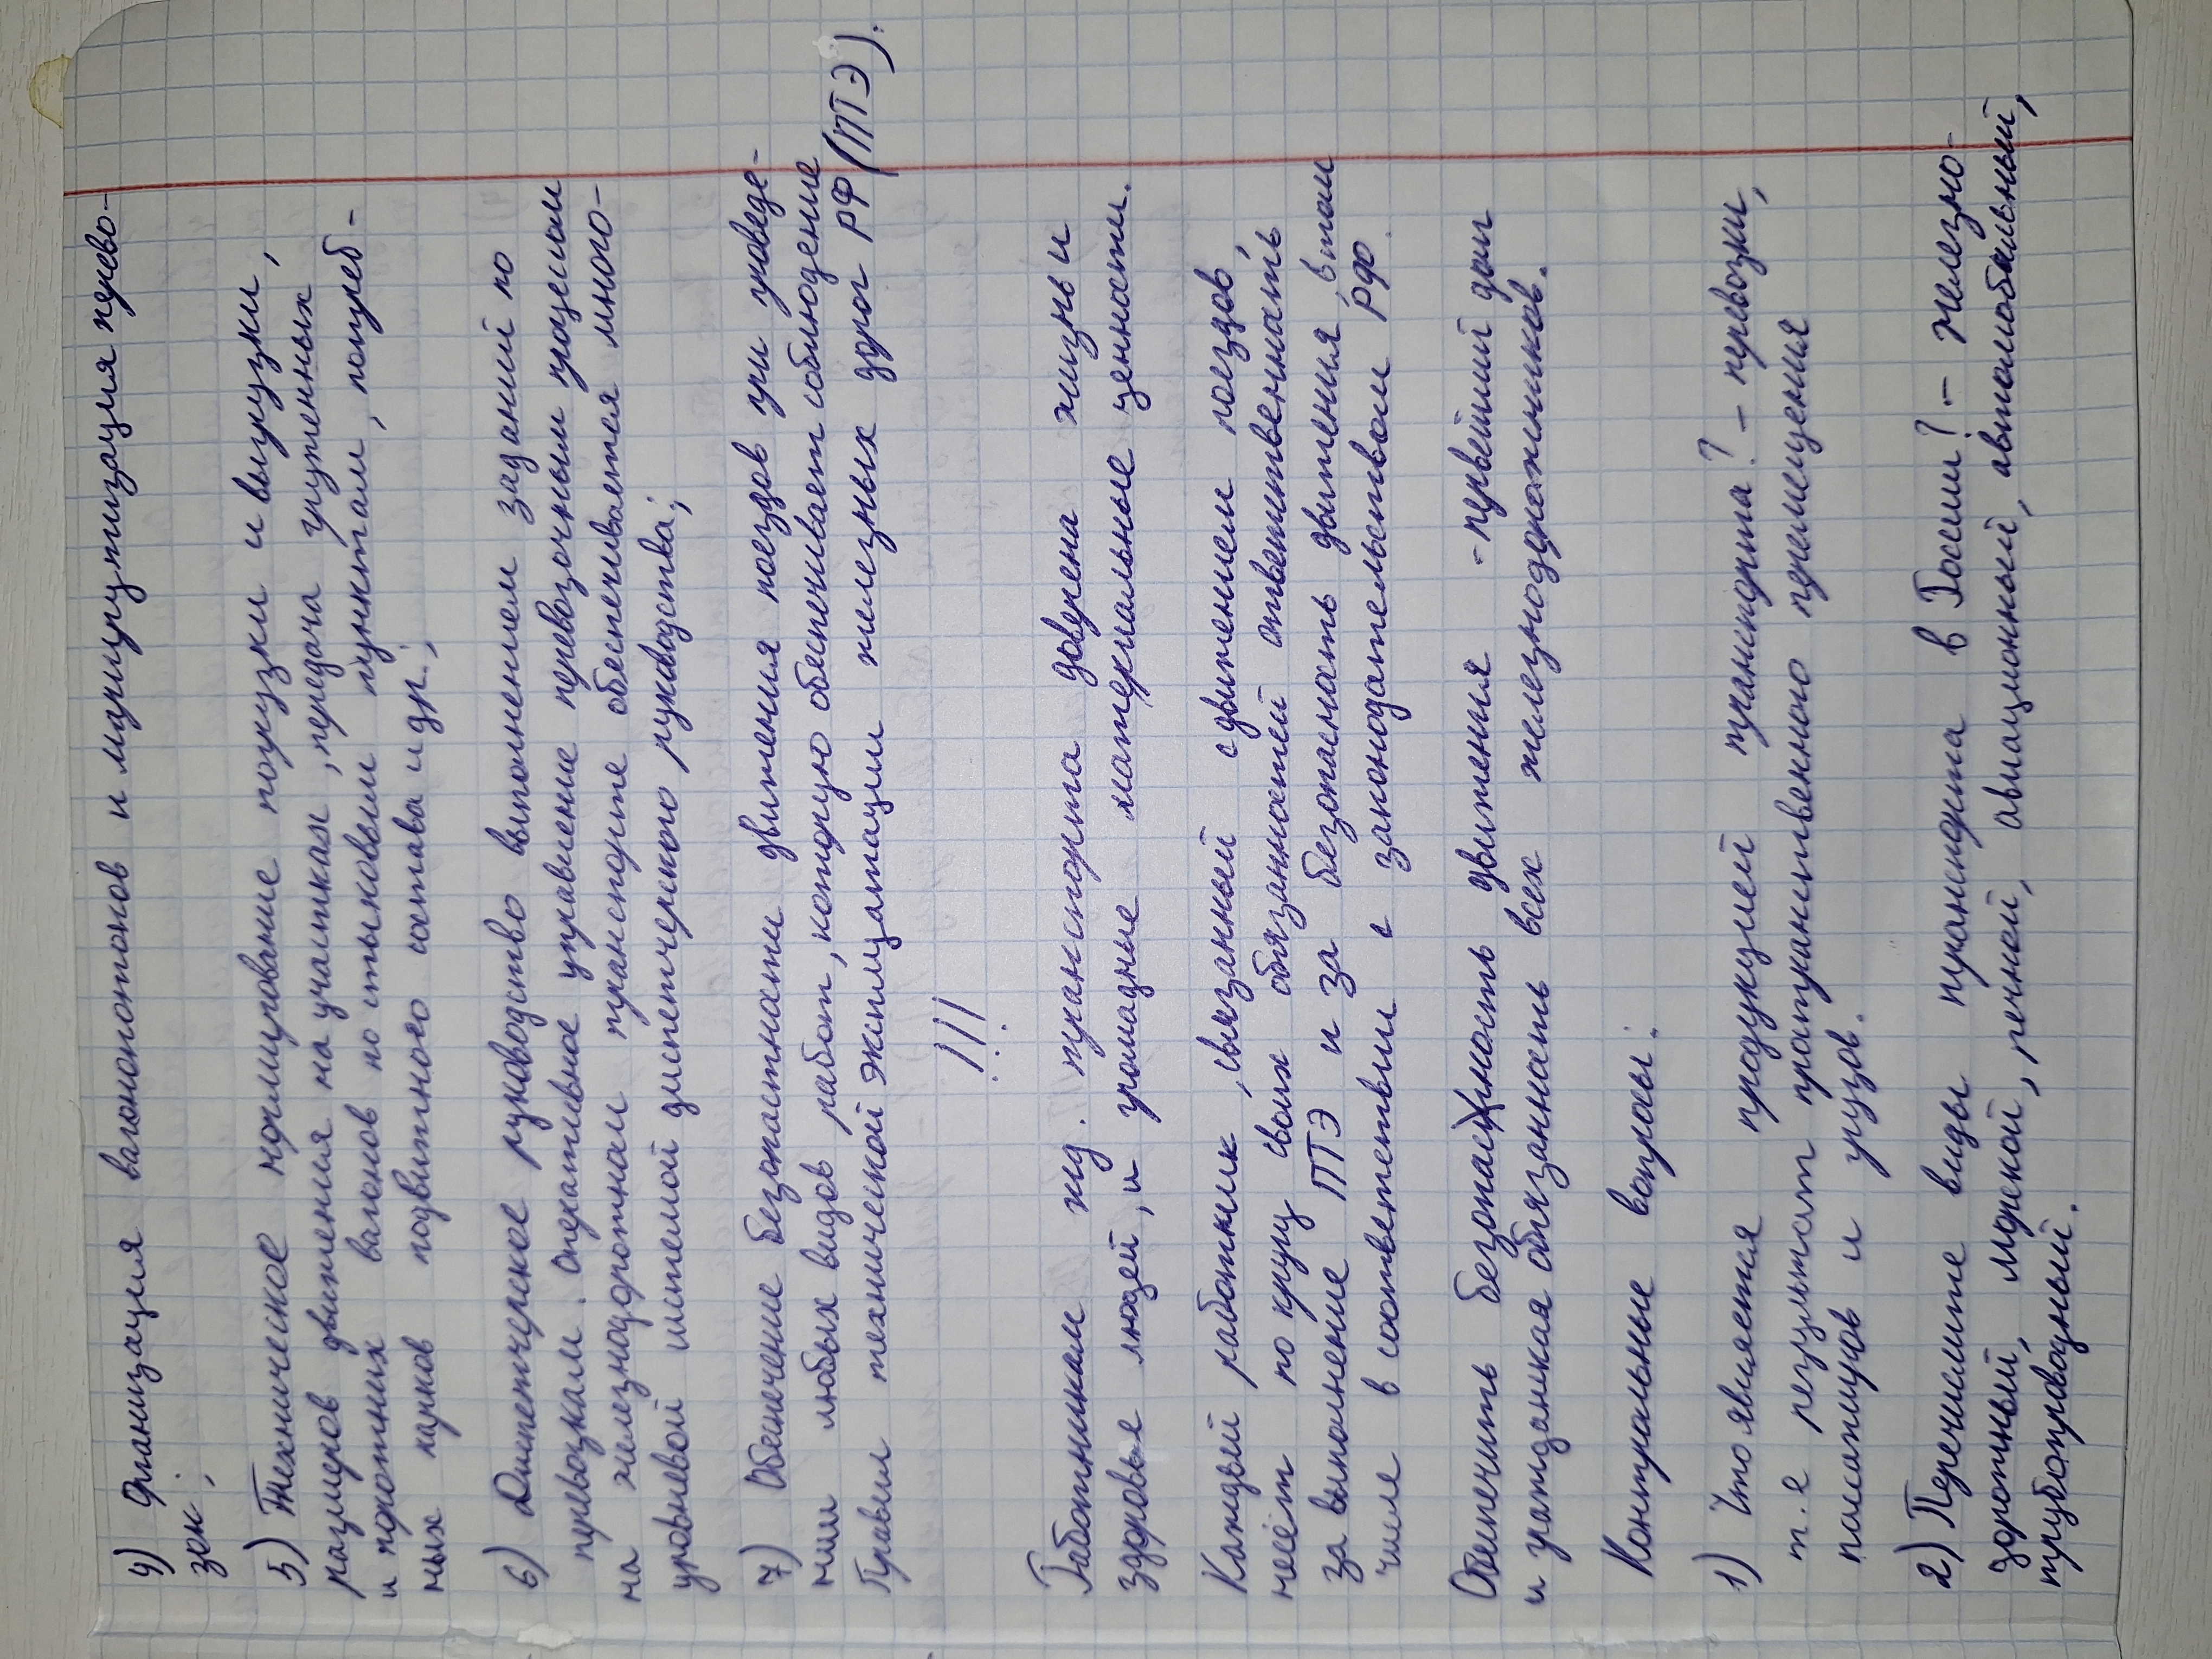 4) Организация вагонопотоков и маршрутизация перево-
зок;
5) Техническое нормирование погрузки и выгрузки,
размеров движения на участках, передача груженных
и порожних вагонов по стыковым пунктам, потреб-
ных парков подвижного состава и др.;
6) Диспетчерское руководство выполнением заданий по
перевозкам. Оперативное управление перевозочным процессом
на железнодорожном транспорте обеспечивается много-
уровневой системой диспетчерского руководства;
7) Обеспечение безопасности движения поездов при проведе-
нии любых видов работ, которую обеспечивает соблюдение
Правил технической эксплуатации железных дорог РФ (ПТЭ).
!!!
Работникам жд. транспорта доверена жизнь и
здоровье людей, и громадные материальные ценности.
Каждый работник, связанный с движением поездов,
несёт по кругу своих обязанностей ответственность
за выполнение ПТЭ и за безопасность движения, в том
числе в соответствии с законодательством РФ.
Обеспечить безопасность движения - первейший долг
и гражданская обязанность всех железнодорожников.
Контрольные вопросы:
1) Что является продукцией транспорта? - перевозки,
т.е результат пространственного перемещения
пассажиров и грузов.
2) Перечислите виды транспорта в России? - железно-
дорожный, морской, речной, авиационный, автомобильный,
трубопроводный.